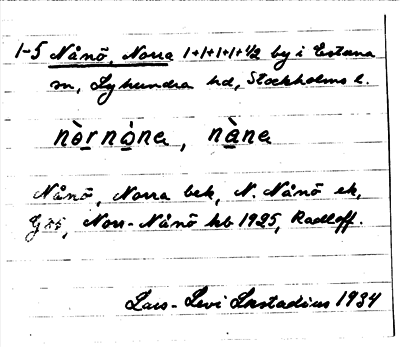 1-5 Nånö, Norra 1+1+1+1+1/2 by i Estuna
sn, Lyhundra hd, Stockholms l.
nò̱rnò̱na, nà̱na
Nånö, Norra bek, N. Nånö ek,
Norr-Nånö kb 1925, Radloff.
Lars-Levi Læstadius 1934